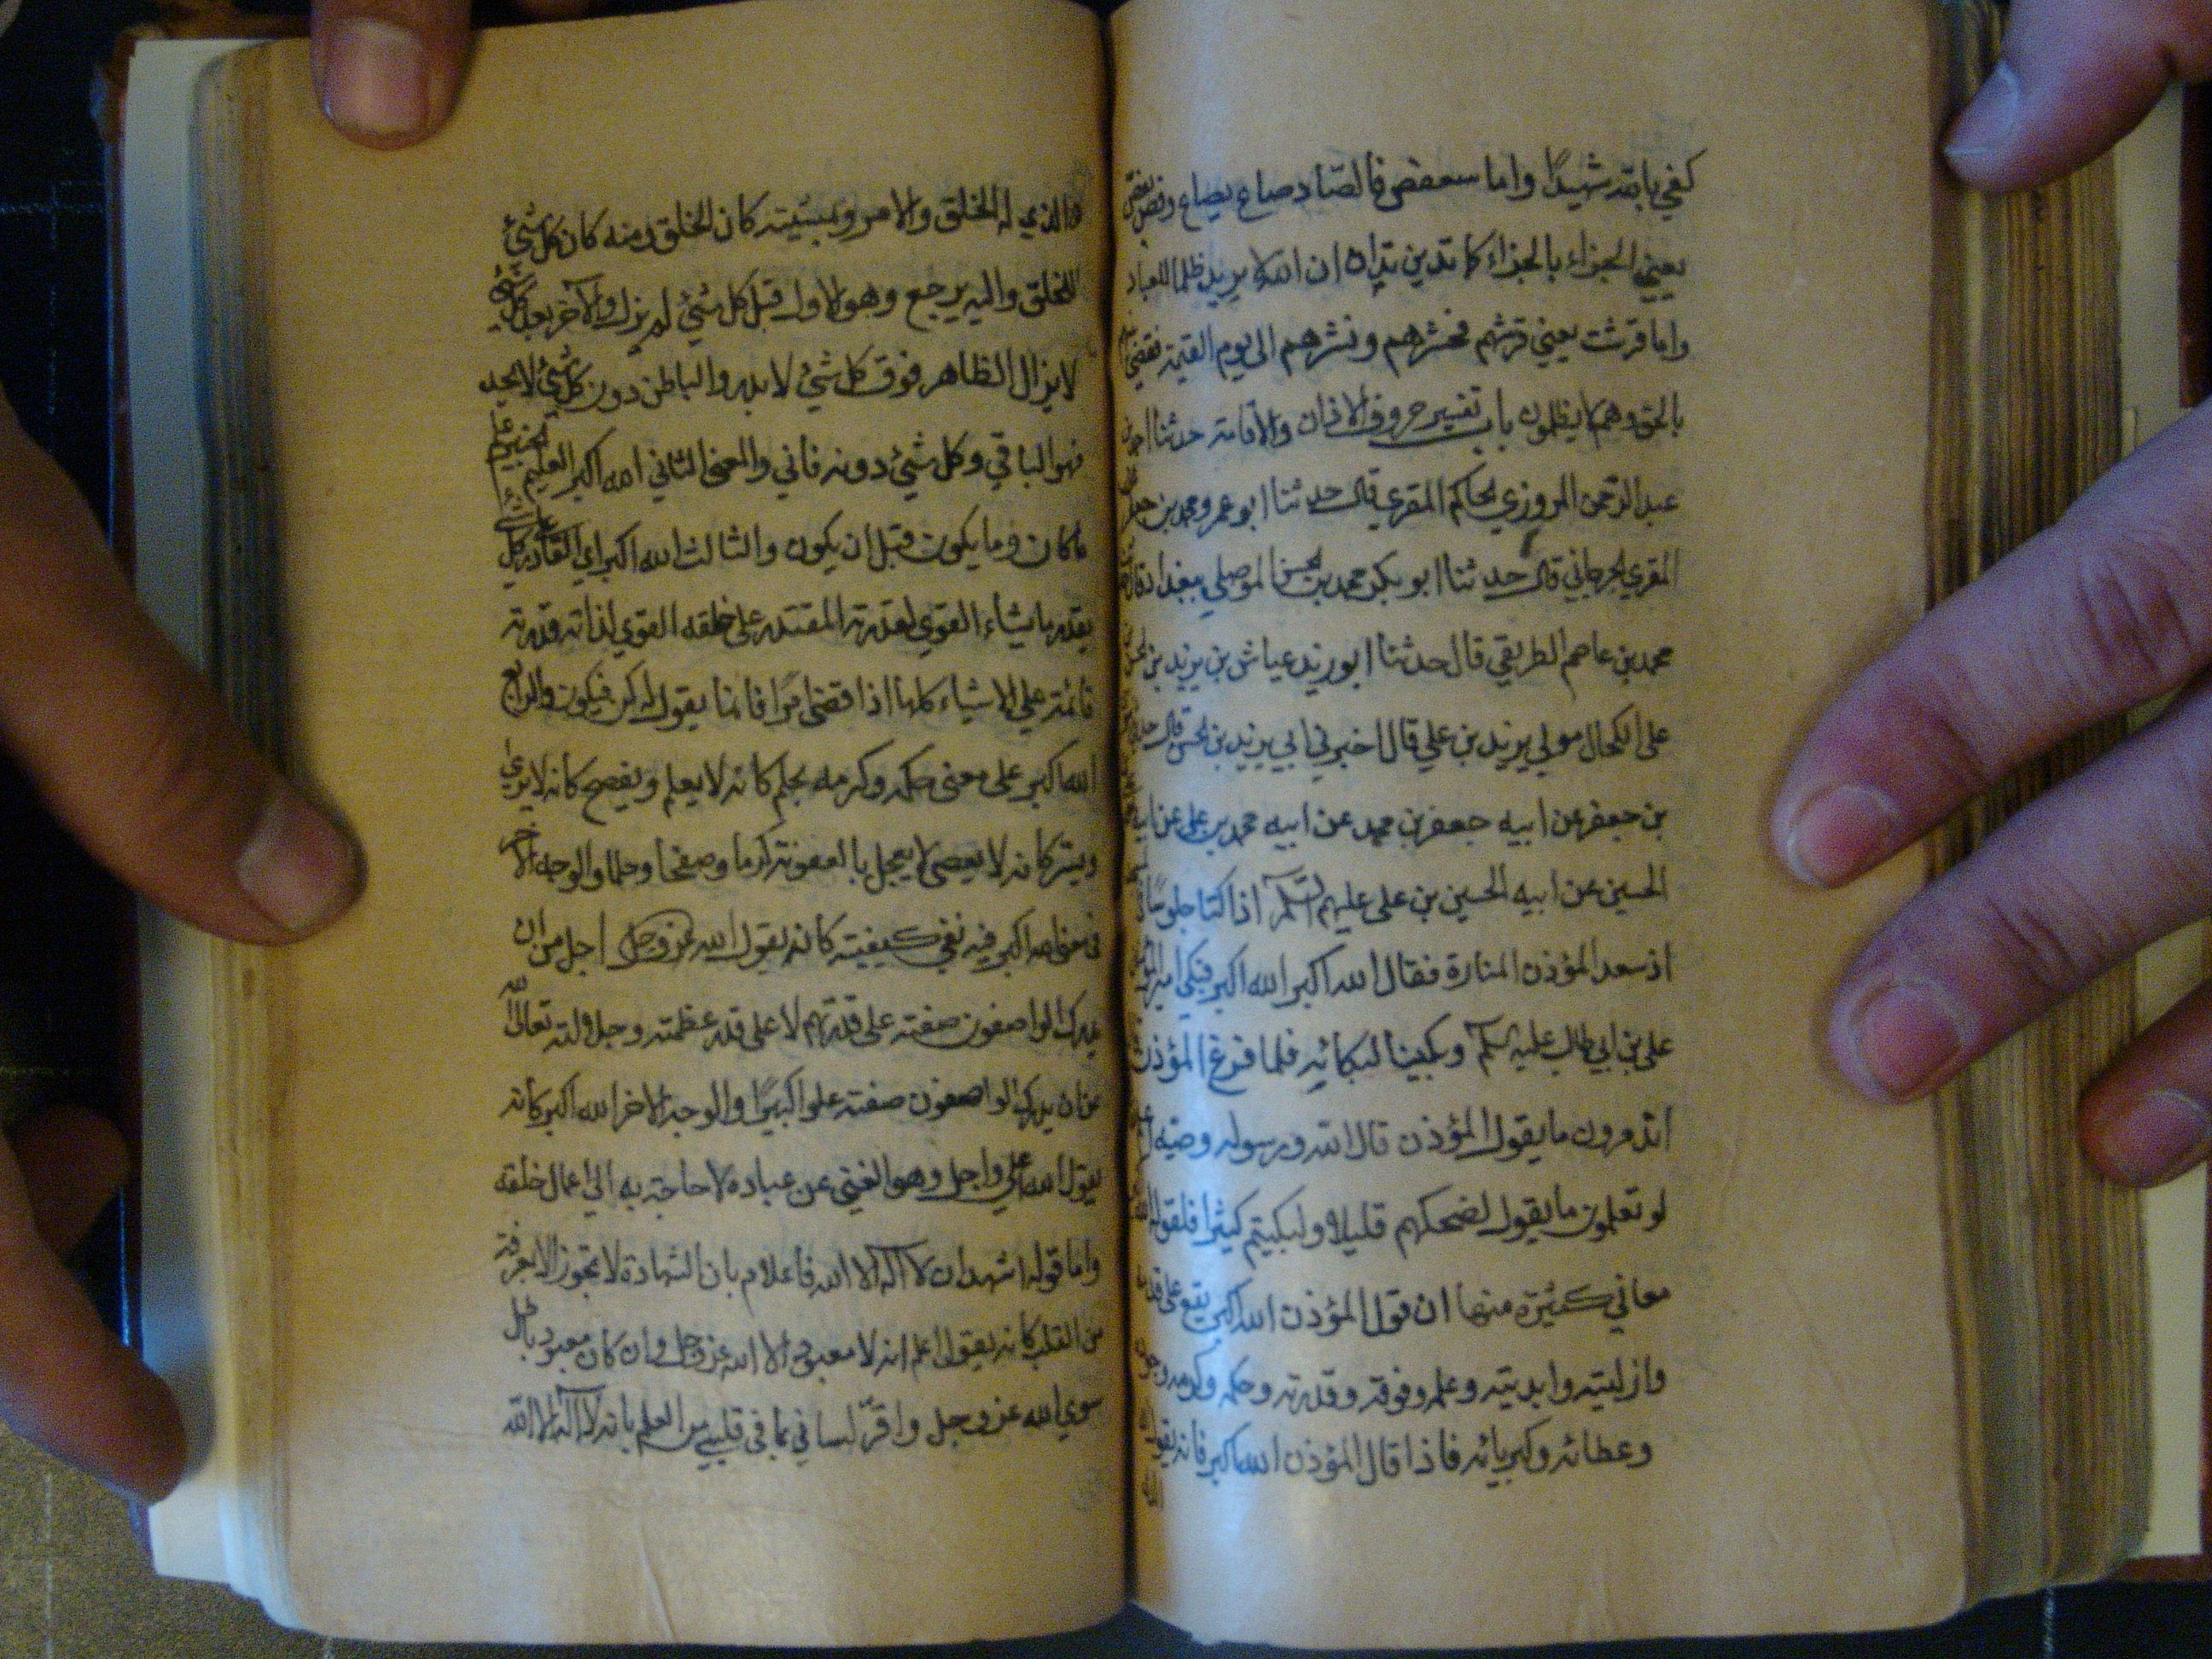 كفي بالله شهيدًا واما سعفص فالصّاد صاع بصاع وفص بفص
يعني الجزاء بالجزاء كما تدين تدان ان الله لا يريد ظلما للعباد
واما قرشت يعني قرشهم فحشرهم ونشرهم الى يوم القيمة فقضي
بالحق وهم لا يظلمون باب تفسير حروف الاذان والاقامة حدثنا احمد بن
عبد الرحمن المروزي الحاكم المقري قال حدثنا ابو عمرو محمد بن جعفر
المقري الجرجاني قال حدثنا ابو بكر محمد بن الحسن الموصلي ببغداد قال
محمد بن عاصم الطريفي قال حدثنا ابو زيد عياش بن يزيد بن الحسن
على الكحال مولي يزيد بن علي قال اخبرني ابي يزيد بن الحسن قال حدثني
بن جعفر عن ابيه جعفر بن محمد عن ابيه محمد بن علي عن ابيه
الحسين عن ابيه الحسين بن علي عليهم السلام اذ كنا جلوسًا في
اذ سعد المؤذن المنارة فقال الله اكبر الله اكبر فبكي امير المؤمنين
على بن ابي طالب عليه السلم وبكينا لبكائه فلما فرغ المؤذن
اتدرون ما يقول المؤذن قال الله ورسوله وصيه
لو تعلمون ما يقول لضحكهم قليلا ولبكيتم كثيرا فلقوله
معاني كثيرة منها ان قول المؤذن الله اكبر يقع على قدمه
وازليته وابديته وعلمه وقوته وقدرته وحكمه وكرمه وجوده
وعطائه وكبريائه فاذا قال المؤذن الله اكبر فانه يقول
الله
الذي له الخلق والامر وبمشيته كان الخلق ومنه كان كل شئ
للخلق واليه يرجع وهو الاول قبل كل شئ لم يزل والآخر بعد كل شئ
لا يزال الظاهر فوق كل شئ لا يدرك والباطن دون كل شئ لا يحد
فهو الباقي وكل شئ دونه فاني والمعنى الثاني الله اكبر العليم الخبير علم
ما كان وما يكون قبل ان يكون والثالث الله اكبر اي القادر على كل شئ
يقدر ما يشاء القوي لقدرته المقتدر على خلقه القوي لذاته قدرته
قائمة علي الاشياء كلها اذا قضى امرًا فانما يقول له كن فيكون والرابع
الله اكبر على معنى حلمه وكرمه يحلم كانه لا يعلم ويصفح كانه لا يرى
ويستر كانه لا يعصى لا يعجل بالعقوبة كرما وصفحا وحلما والوجه الاخر
في معنى الله اكبر فيه نفي كيفيته كانه يقول الله عز وجل اجل من ان
يدرك الواصفون صفته على قدرتهم لا على قدر عظمته وجلالته تعالى الله
عن ان يدرك الواصفون صفته علوا كبيرًا والوجه الاخر الله اكبر كانه
يقول الله اعلي واجل وهو الغني عن عباده لا حاجة به الي اعمال خلقه
واما قوله اشهد ان لا اله الا الله فأعلام بان الشهادة لا تجوز الا بمعرفة
من القلب كانه يقول اعلم انه لا معبود الا الله عز وجل وان كان معبود باطل
سوي الله عز وجل واقرّ لساني بما في قلبي من العلم بانه لا اله الا الله